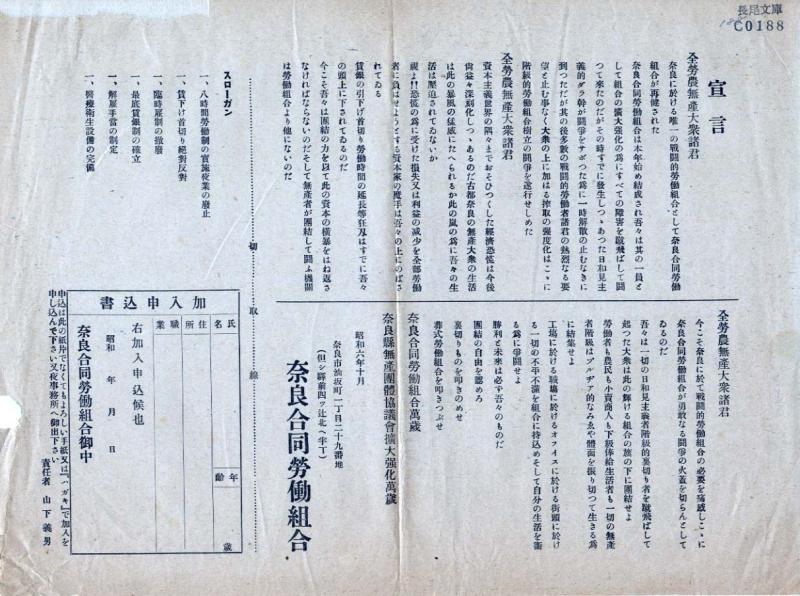 長尾文庫
C0188
宣言
全勞農無產大衆諸君
奈良に於ける唯一の戰鬪的勞働組合として奈良合同勞働
組合が再健された
奈良合同勞働組合は本年始め結成され吾々は其の一員と
して組合の擴大强化の爲にすべての障害を蹴飛ばして鬪
つて來たのだがその時すでに發生しつゝあつた日和見主
義的ダラ幹が鬪爭をサボつた爲に一時解散の止むなきに
到つただが其の後多數の戰鬪的勞働者諸君の熱烈なる要
望と止む事なく大衆の上に加はる搾取の强度化はこゝに
階級的勞働組合樹立の鬪爭を遂行せしめた
全勞農無產大衆諸君
資本主義世界の隅々までおそひつくした經濟恐慌は今後
尙益々深刻化しつゝあるのだ古都奈良の無產大衆の生活
は此の暴風の猛威にたへられるか此の嵐の爲に吾々の生
活は壓迫されてゐないか
視よ!!恐慌の爲に受けた損失又は利益の減少を全部勞働
者に負はせようとする資本家の魔手は吾々の上にのばさ
れてゐる
賃銀の引下げ首切り勞働時間の延長等狂及はすでに吾々
の頭上に下されてゐるのだ
今こそ吾々は團結の力を以て此の資本の橫暴をはね返さ
なければならないのだそして無產者が團結して鬪ふ機關
は勞働組合より他にないのだ
全勞農無產大衆諸君
今こそ奈良に於て戰鬪的勞働組合の必要を痛感しこゝに
奈良合同勞働組合が勇敢なる鬪爭の火蓋を切らんとして
ゐるのだ
吾々は一切の日和見主義者階級的裏切り者を蹴飛ばして
起つた大衆は此の輝ける組合の旗の下に團結せよ
勞働者も農民も小賣商人も下級俸給生活者も一切の無產
者階級はブルヂア的なみゑや體面を振り切つて生きる爲
に結集せよ
工場に於ける職場に於けるオフイスに於ける街頭に於け
る一切の不平不滿を組合に持込めそして自分の生活を衞
る爲に爭鬪せよ
勝利と未來は必ず吾々のものだ
團結の自由を認めろ
裏切りものを叩きのめせ
葬式勞働組合を叩きつぶせ
奈良合同勞働組合萬歲
奈良縣無產團體協議會擴大强化萬歲
昭和六年十月
奈良市油坂町一丁目二十九番地
(但シ驛前四ツ辻北ヘ半丁)
奈良合同勞働組合
切取線
スローガン
一、八時間勞働制の實施夜業の廢止
一、賃下げ首切り絕對反對
一、臨時雇制の撤廢
一、最底賃銀制の確立
一、解雇手當の制定
一、醫療衞生設備の完備
加入申込書
氏名
年齡
歲
住所
職業
右加入申込候也
昭和 年 月 日
奈良合同勞働組合御中
申込は此の紙片でなくてもよろしい手紙又は『ハガキ』で加入を
申し込んで下さい又本事務所へ御出下さい
責任者 山下義男